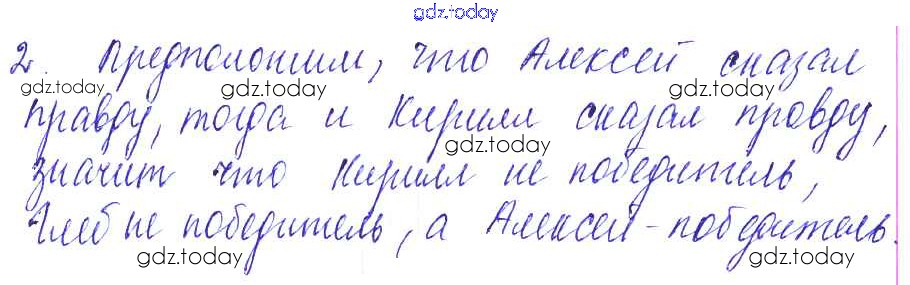 gdz.today
2. Предположим, что Алексей сказал
gdz.today gdz.today gdz.today
правду, тогда и Кирилл сказал провду,
gdz.today
значит что Кирилл не победитель,
Глеб не победитель, а Алексей - победитель.
gdz.today gdz.today gdz.today